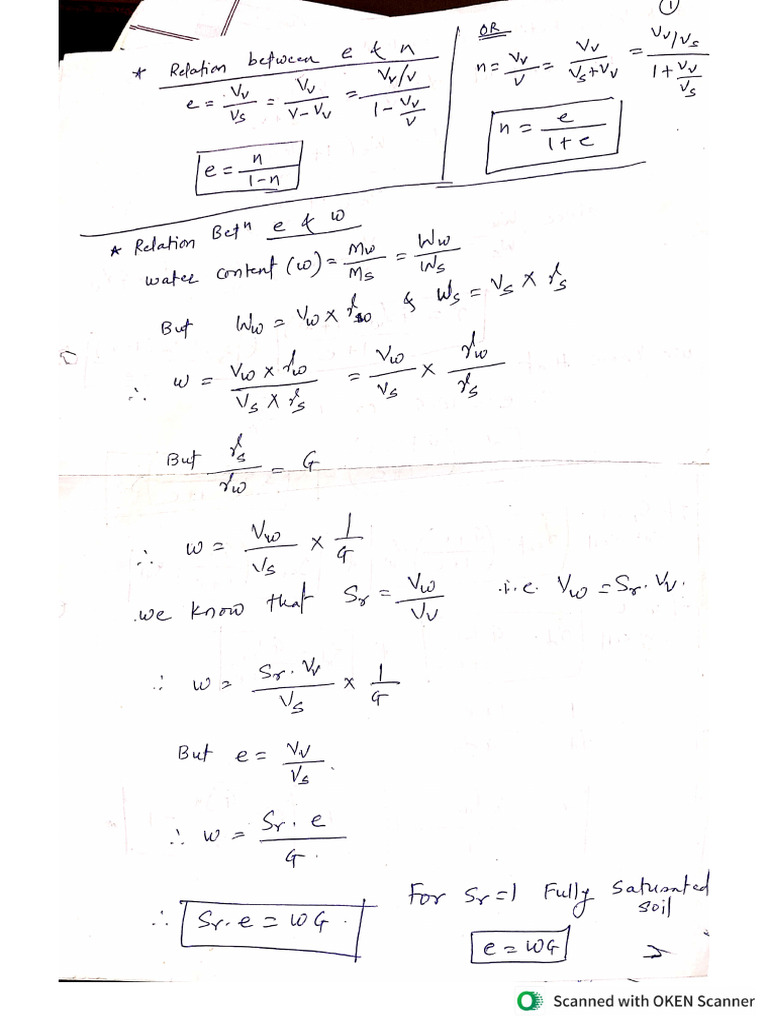 ①
* Relation between e & n
e = Vv/Vs = Vv/(V-Vv) = (Vv/V)/(1-Vv/V)
e = n/(1-n)
OR
n = Vv/V = Vv/(Vs+Vv) = (Vv/Vs)/(1+Vv/Vs)
n = e/(1+e)
* Relation Betⁿ e & w
water content (w) = Mw/Ms = Ww/Ws
But Ww = Vw × γw & Ws = Vs × γs
∴ w = (Vw × γw)/(Vs × γs) = Vw/Vs × γw/γs
But γs/γw = G
∴ w = Vw/Vs × 1/G
we know that Sr = Vw/Vv i.e. Vw = Sr. Vv.
∴ w = (Sr. Vv)/Vs × 1/G
But e = Vv/Vs.
∴ w = (Sr. e)/G.
∴ Sr.e = wG.
For Sr=1 Fully saturated
soil
e = wG
Scanned with OKEN Scanner